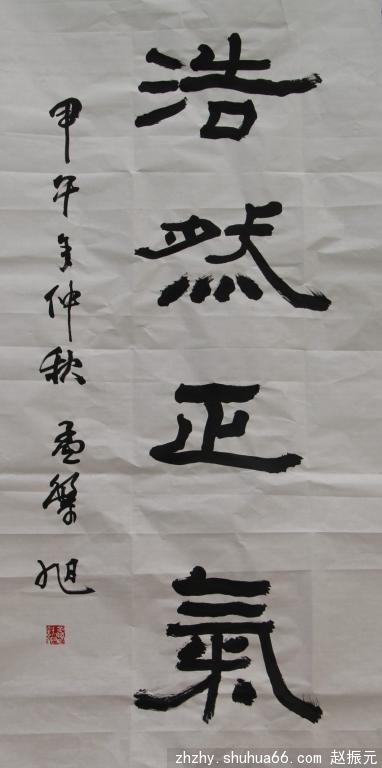 浩然正氣
甲午年仲秋 孟 旭
zhzhy.shuhua66.com 赵振元